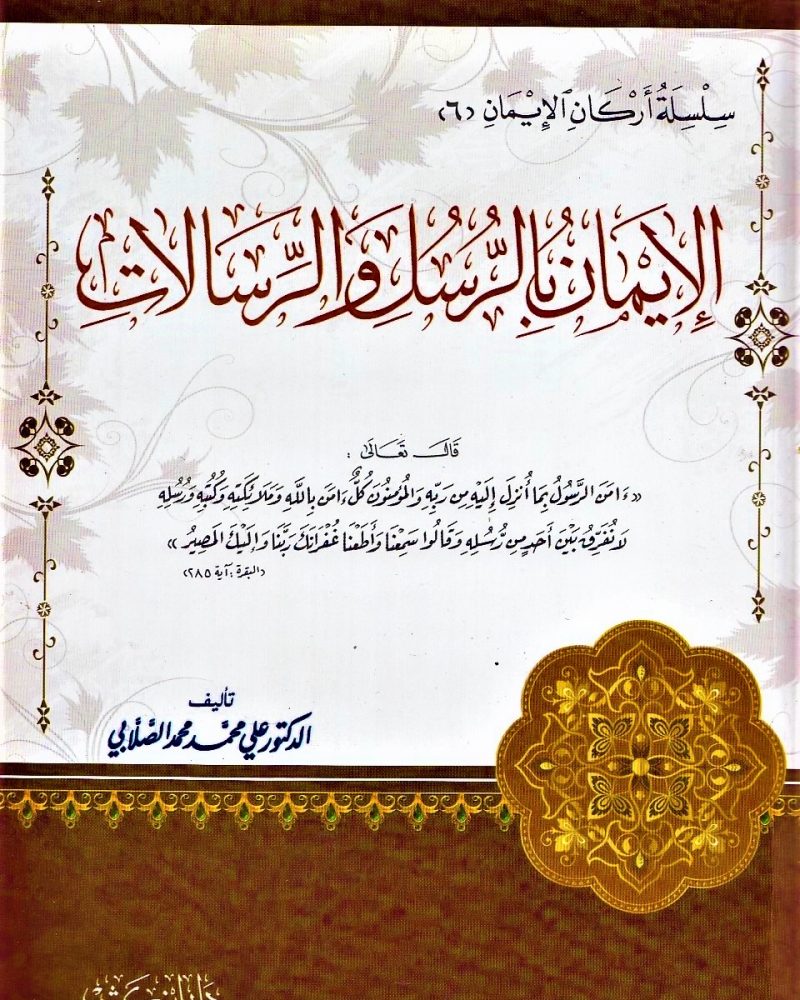 سِلْسِلَةُ أَرْكَانِ الإِيْمَانِ (٦)
الإِيْمَانُ بِالرُّسُلِ وَالرِّسَالَاتِ
قَالَ تَعَالَىٰ :
«ءَامَنَ الرَّسُولُ بِمَا أُنزِلَ إِلَيْهِ مِن رَبِّهِ وَالْمُؤْمِنُونَ كُلٌّ ءَامَنَ بِاللَّهِ وَمَلَائِكَتِهِ وَكُتُبِهِ وَرُسُلِهِ
لَا نُفَرِّقُ بَيْنَ أَحَدٍ مِن رُّسُلِهِ وَقَالُوا سَمِعْنَا وَأَطَعْنَا غُفْرَانَكَ رَبَّنَا وَإِلَيْكَ الْمَصِيرُ»
(البقرة : آية ٢٨٥)
تأليف
الدكتور علي محمد محمد الصَّلَّابي